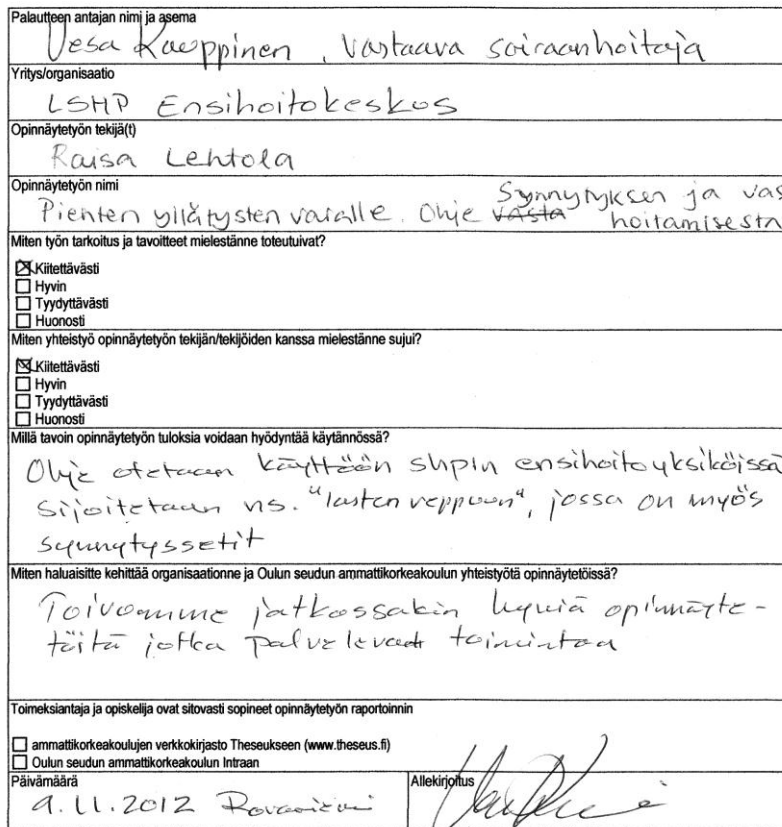 Palautteen antajan nimi ja asema
Vesa Kauppinen, Vastaava sairaanhoitaja
Yritys/organisaatio
LSHP Ensihoitokeskus
Opinnäytetyön tekijä(t)
Raisa Lehtola
Opinnäytetyön nimi
Synnytyksen ja vas
Pienten yllätysten varalle. Ohje vasta hoitamisesta
Miten työn tarkoitus ja tavoitteet mielestänne toteutuivat?
Kiitettävästi
Hyvin
Tyydyttävästi
Huonosti
Miten yhteistyö opinnäytetyön tekijän/tekijöiden kanssa mielestänne sujui?
Kiitettävästi
Hyvin
Tyydyttävästi
Huonosti
Millä tavoin opinnäytetyön tuloksia voidaan hyödyntää käytännössä?
Ohje otetaan käyttöön shpin ensihoitoyksiköissä
sijoitetaan ns. "lasten reppuun", jossa on myös
synnytyssetit
Miten haluaisitte kehittää organisaationne ja Oulun seudun ammattikorkeakoulun yhteistyötä opinnäytetöissä?
Toivomme jatkossakin hyviä opinnäyte-
töitä jotka palvelevat toimintaa
Toimeksiantaja ja opiskelija ovat sitovasti sopineet opinnäytetyön raportoinnin
ammattikorkeakoulujen verkkokirjasto Theseukseen (www.theseus.fi)
Oulun seudun ammattikorkeakoulun Intraan
Päivämäärä
9.11.2012 Rovaniemi
Allekirjoitus